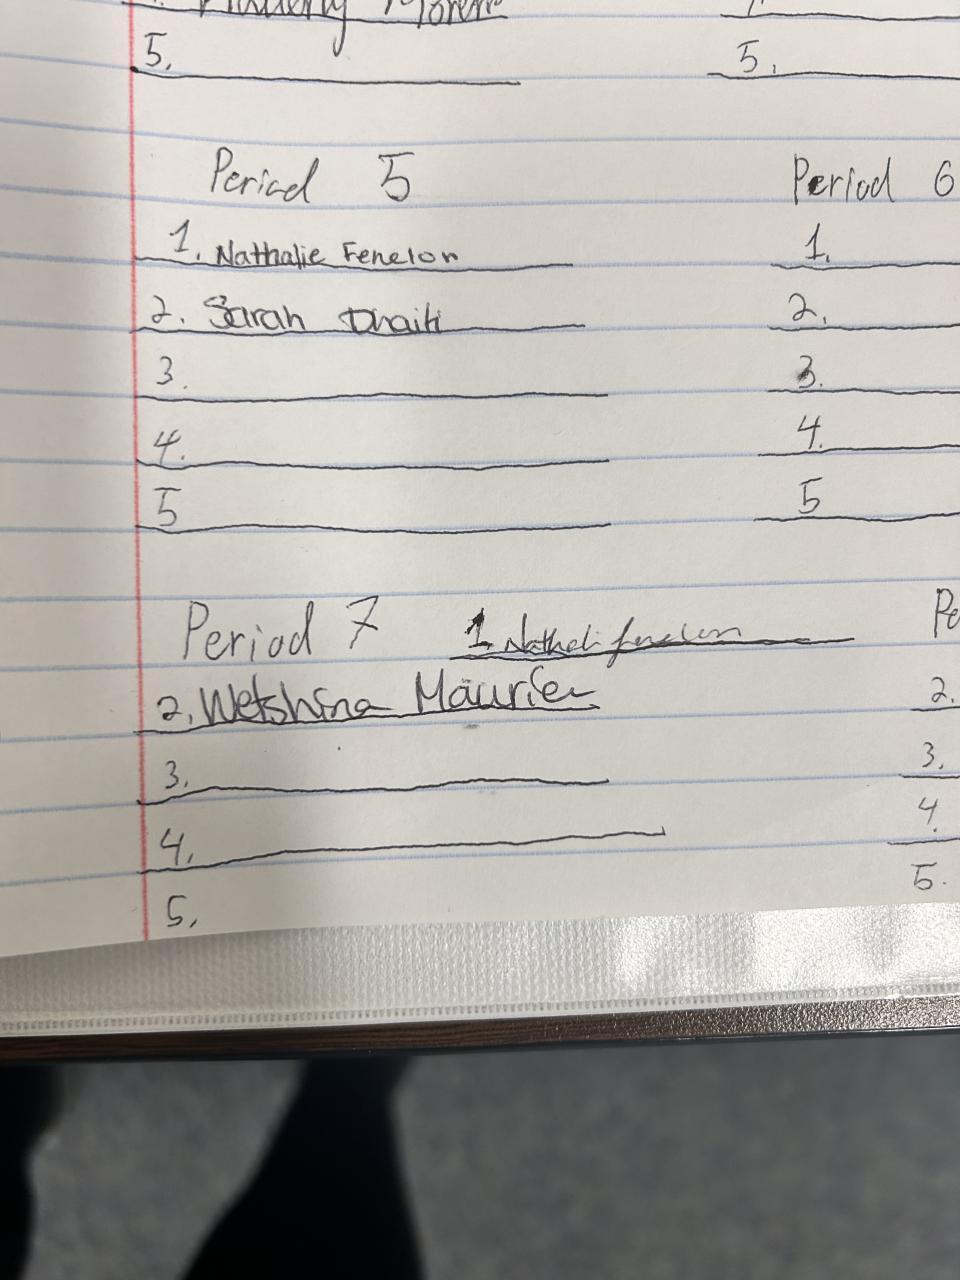 5.
5.
Period 5
1. Nathalie Fenelon
2. Sarah Dhaiti
3.
4.
5
Period 6
1.
2.
3.
4.
5
Period 7
1. Nathali fenelon
2. Wetshina Maurier
3.
4.
5.
Pe
2.
3.
4.
5.